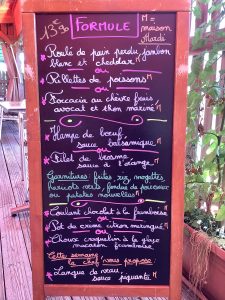 13€90 FORMULE M = maison Mardi
* Roulé de pain perdu, jambon
blanc et cheddar M
ou
* Rillettes de poissons M
ou
* Foccacia au chèvre frais
avocat et thon mariné M
* Hampe de bœuf,
sauce balsamique M
ou
* Filet de
sauce à l'orange M
Garnitures: frites, riz,
haricots verts, fondue de poireaux
ou patates nouvelles M
* Coulant chocolat à la framboise
ou
* Pot de crème citron meringué M
ou
* Choux craquelin à la glace
macaron framboise M
Cette semaine
le chef vous propose
* Langue de veau,
sauce piquante M